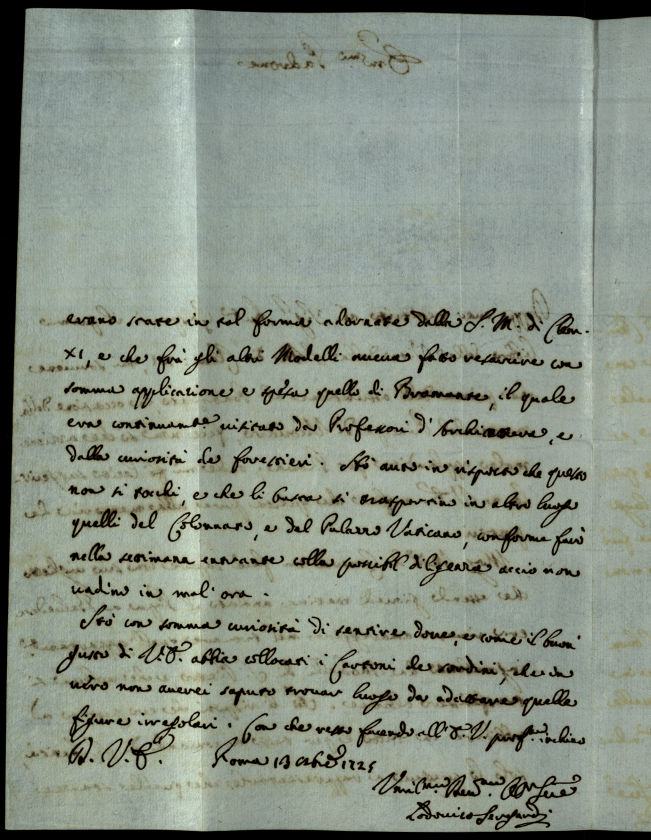 erano state in tal forma adornate dalla S. M. di Clem.
XI, e che frà gli altri Modelli aveva fatto resarcire con
somma applicazione e spesa quello di Bramante, il quale
era continuam.te visitato da Professori d'Architettura, e
dalla curiosità de forestieri. Hò auto in risposta che questo
non si tocchi, e che li basta si trasportin in altro luogo
quelli del Colonnato, e del Palazzo Vaticano, conforme farò
nella settimana entrante colla possibil diligenza acciò non
vadino in mal'ora.
Stò con somma curiosità di sentire dove, e come il buon
gusto di V. E. abbia collocati i Cartoni de sordini, che in
vero non averei saputo trovar luogo da adattare quelle
figure irregolari. Con che resto facendo all'E. V. prof.ma inchino
D. V. E. Roma 13 1725
Umil.mo
Lodovico Sergardi